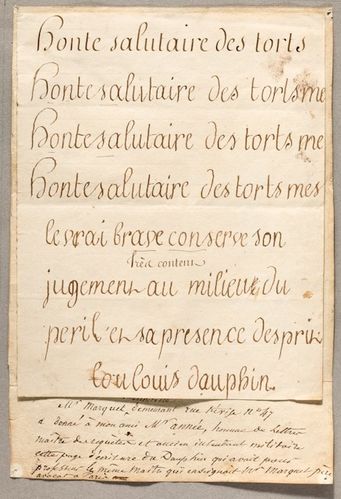 honte salutaire des torts
honte salutaire des torts me
honte salutaire des torts me
honte salutaire des torts mes
le vrai brave conserve son
très content
jugement au milieu du
peril et sa presence desprit
lou louis dauphin
Mr Marquet, demeurant rue N° 47
a donné à mon ami Mr année, homme de Lettre
maitre des requetes et ancien intendant militaire
cette page d'écriture du Dauphin qui avait pour
professeur le même Maitre qui enseignait Mr Marquet père
avocat à